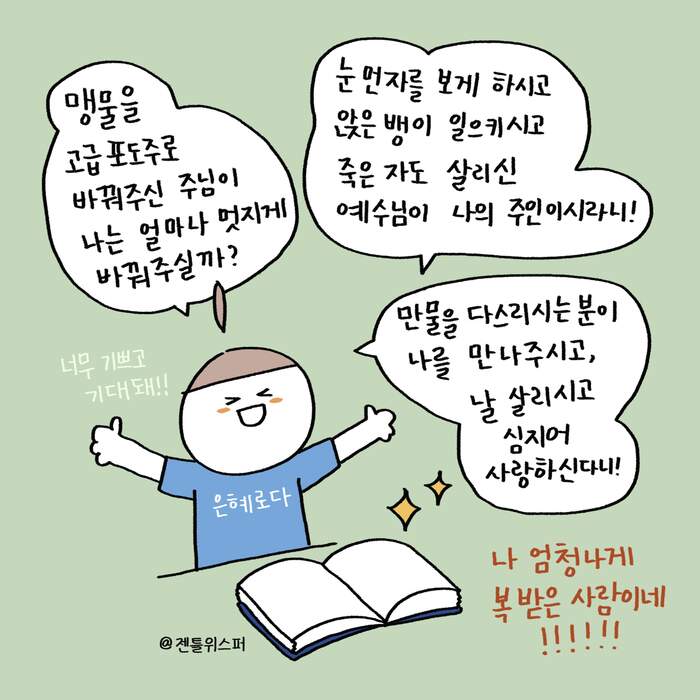 맹물을
고급 포도주로
바꿔주신 주님이
나는 얼마나 멋지게
바꿔주실까?
눈 먼자를 보게 하시고
앉은뱅이 일으키시고
죽은 자도 살리신
예수님이 나의 주인이시라니!
만물을 다스리시는 분이
나를 만나주시고,
날 살리시고
심지어
사랑하신다니!
너무 기쁘고
기대돼!!
은혜로다
나 엄청나게
복 받은 사람이네
!!!!!!
@젠틀위스퍼